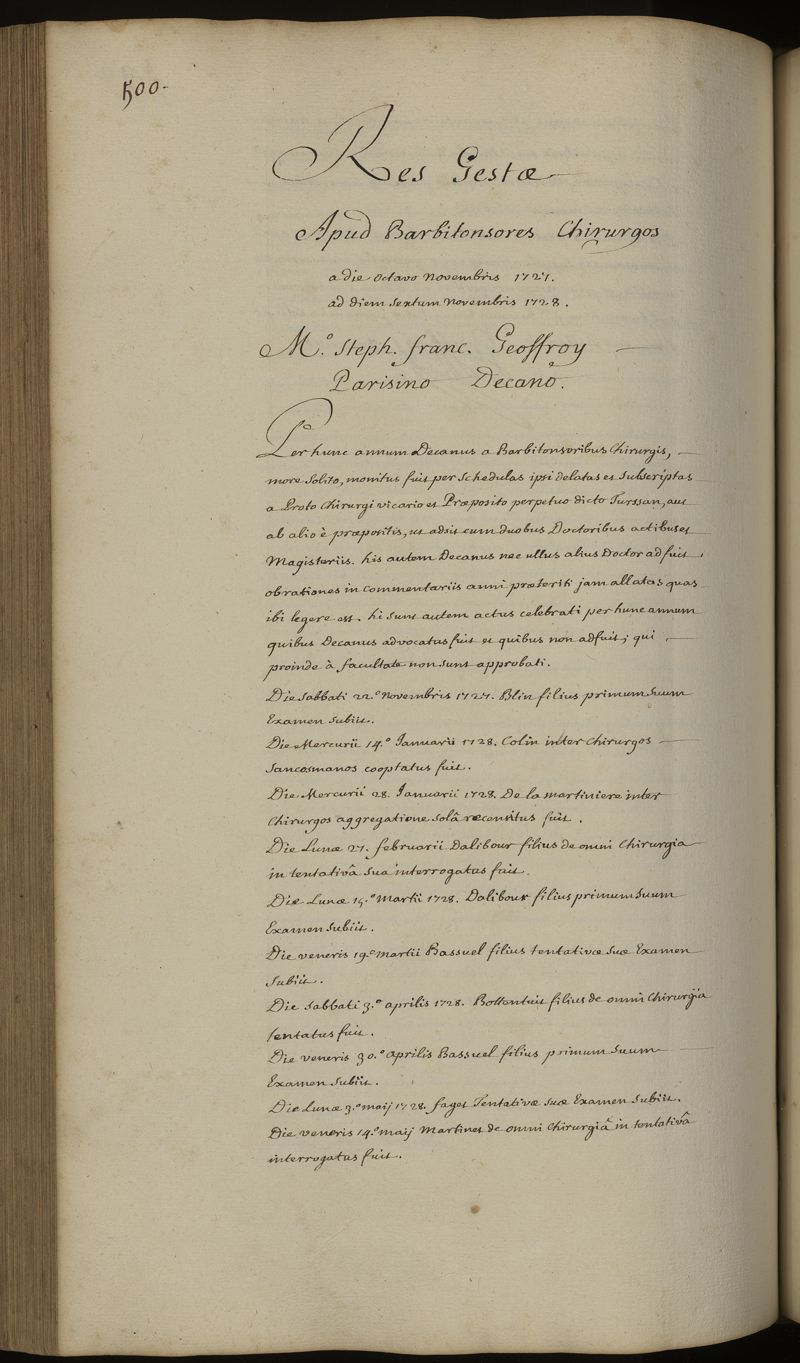 500.
Res Gestæ
Apud Barbitonsores Chirurgos
a die octavo Novembris 1727.
ad diem sextum Novembris 1728.
M.º Steph. franc. Geoffroy
Parisino Decano.
Per hunc annum Decanus a Barbitonsoribus Chirurgis,
more solito, monitus fuit per schedulas ipsi delatas et subscriptas
a Proto Chirurgi vicario et Præposito perpetuo dicto Turssan, aut
ab alio è præpositis, ut adsit cum duobus Doctoribus actibus et
Magisteriis. his autem Decanus nec ullus alius Doctor adfuit,
ob rationes in commentariis anni præteriti jam allatas quas
ibi legere est. hi sunt autem actus celebrati per hunc annum
quibus Decanus advocatus fuit et quibus non adfuit; qui
proinde à facultate non sunt approbati.
Die Sabbati 22.º Novembris 1727. Blin filius primum suum
Examen subiit.
Die Mercurii 14.º Januarii 1728. Colin inter Chirurgos
Sancosmanos cooptatus fuit.
Die Mercurii 28. Januarii 1728. De la martiniere inter
Chirurgos aggregatione solâ recensitus fuit.
Die Lunæ 27. februarii Dalibour filius de omni Chirurgia
in tentativâ sua interrogatus fuit.
Die Lunæ 15.º Martii 1728. Dalibour filius primum suum
Examen subiit.
Die veneris 19.º martii Bassuel filius tentativæ suæ Examen
subiit.
Die Sabbati 3.º aprilis 1728. Bottentuit filius de omni Chirurgia
tentatus fuit.
Die veneris 30.º aprilis Bassuel filius primum suum
Examen subiit.
Die Lunæ 3.º maij 1728. faget Tentativæ suæ Examen subiit.
Die veneris 14.º maij Martinet de omni Chirurgiâ in tentativâ
interrogatus fuit.